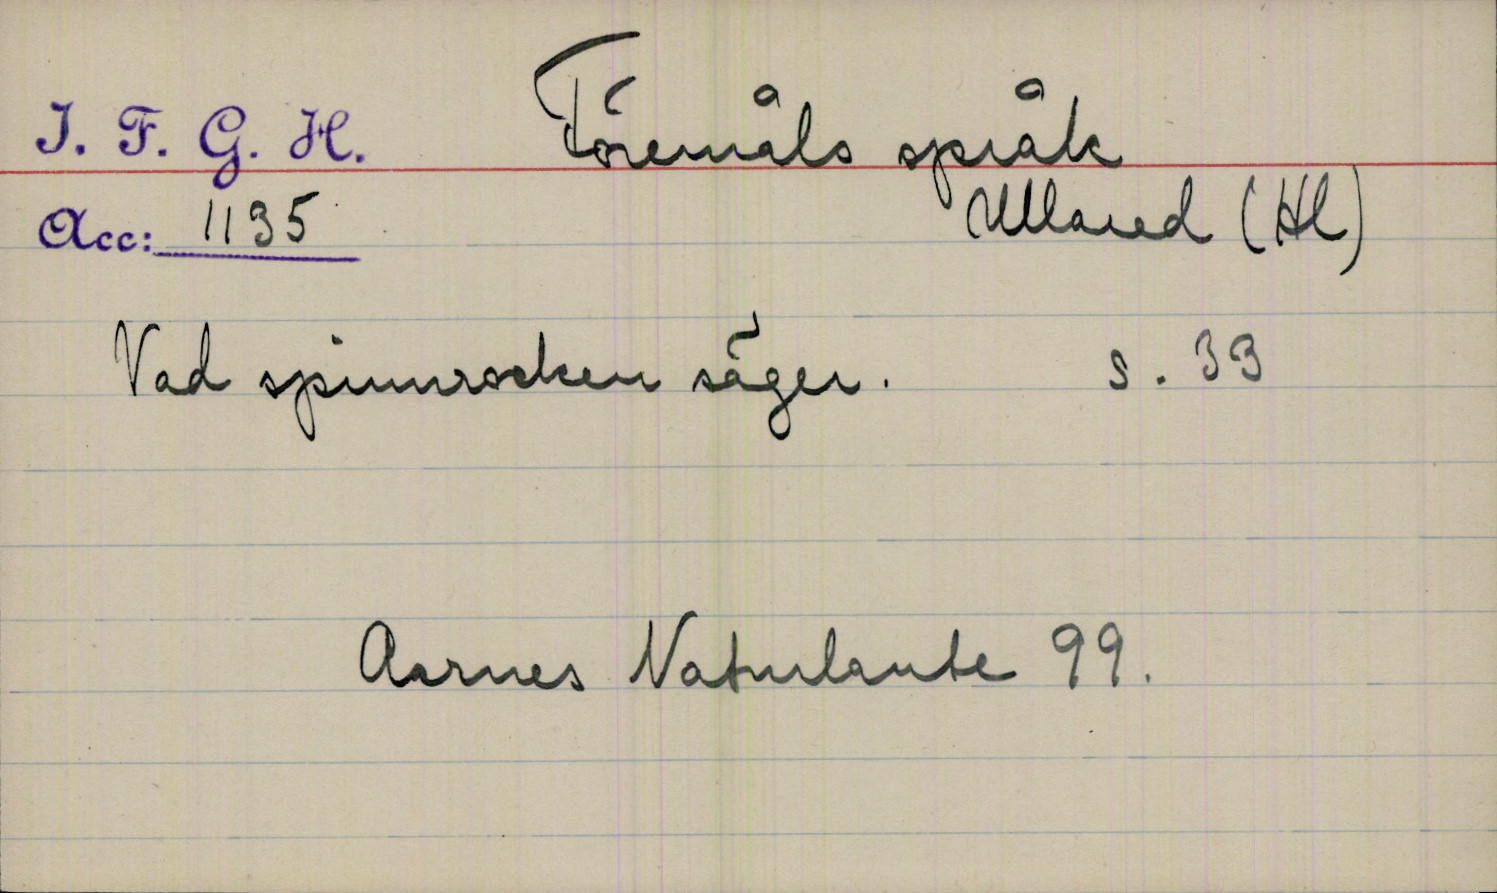 I. F. G. H.
Föremåls språk
Acc: 1135
Ullared (Hl)
Vad spinnrocken säger. s. 33
Aarnes Naturlaute 99.